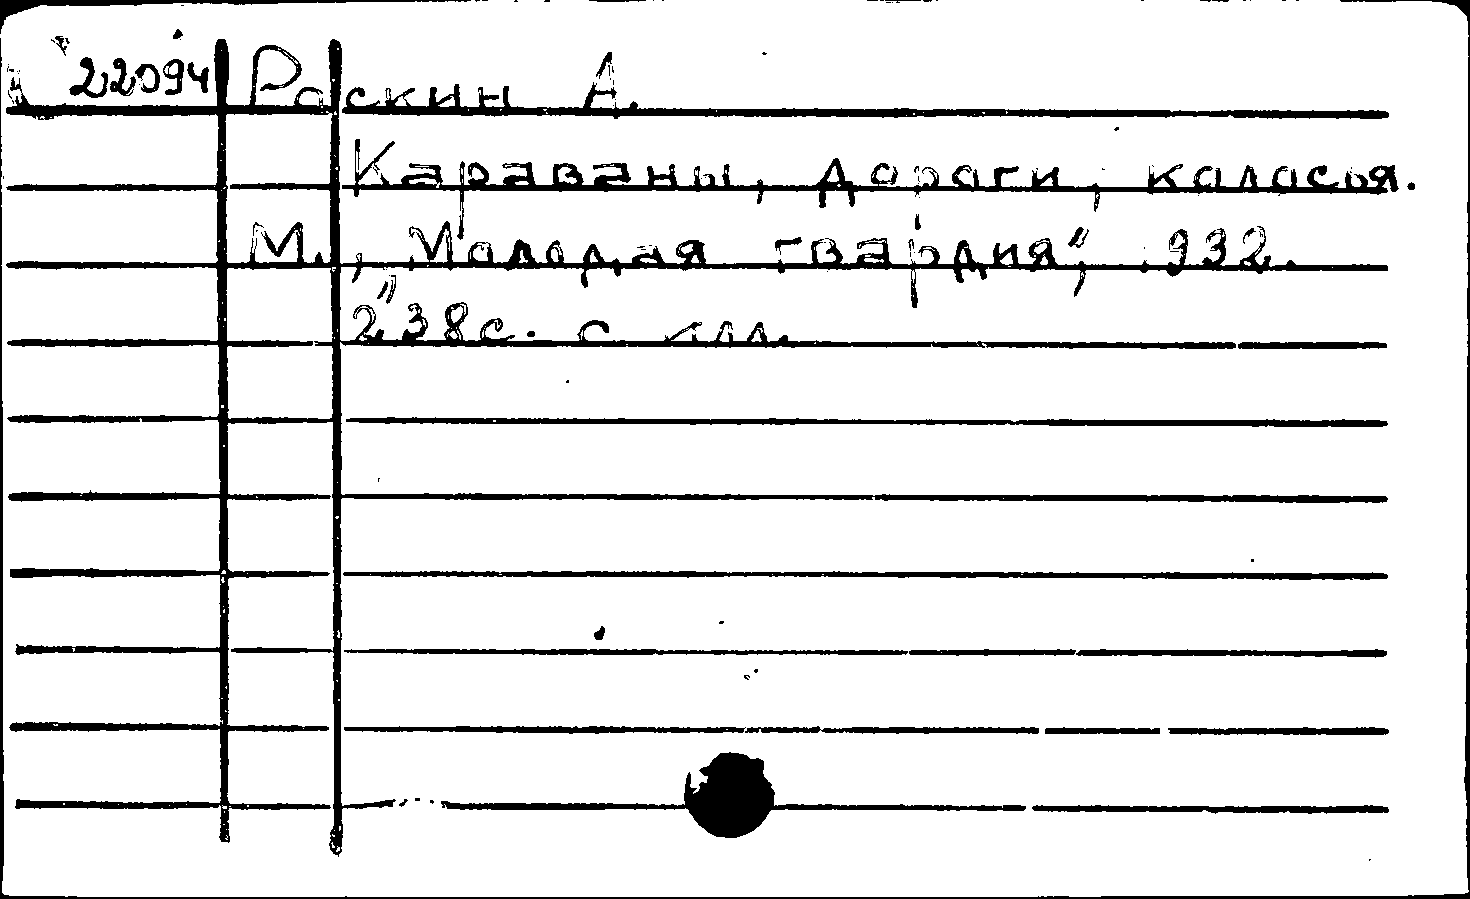 22094 Раскин А.
Караваны, дороги, колосья.
М., „Молодая гвардия“, 932.
238с. с илл.